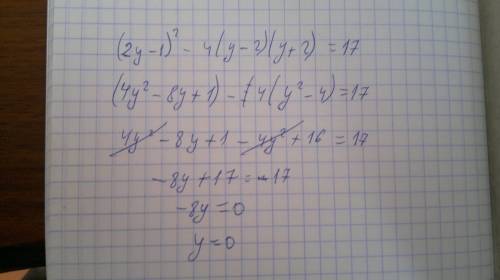 (2y-1)² - 4(y-2)(y+2) = 17
(4y² - 8y + 1) - 4(y² - 4) = 17
4y² - 8y + 1 - 4y² + 16 = 17
-8y + 17 = 17
-8y = 0
y = 0